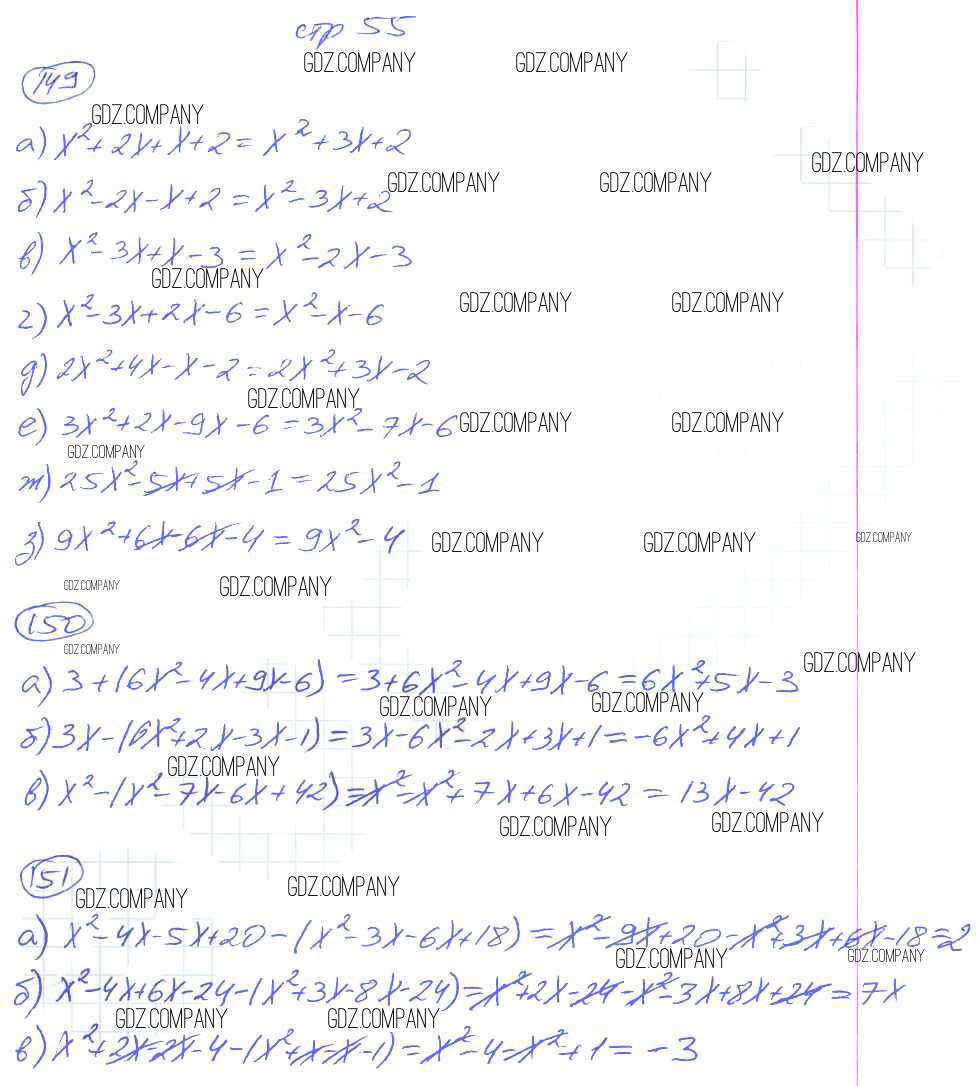 стр 55
GDZ.COMPANY GDZ.COMPANY
149
GDZ.COMPANY
а) x²+2x+x+2=x²+3x+2
GDZ.COMPANY
GDZ.COMPANY GDZ.COMPANY
б) x²-2x-x+2=x²-3x+2
в) x²-3x+x-3=x²-2x-3
GDZ.COMPANY
GDZ.COMPANY GDZ.COMPANY
г) x²-3x+2x-6=x²-x-6
д) 2x²+4x-x-2=2x²+3x-2
GDZ.COMPANY
е) 3x²+2x-9x-6=3x²-7x-6
GDZ.COMPANY GDZ.COMPANY
GDZ.COMPANY
ж) 25x²-5x+5x-1=25x²-1
з) 9x²+6x-6x-4=9x²-4
GDZ.COMPANY GDZ.COMPANY GDZ.COMPANY
GDZ.COMPANY GDZ.COMPANY
150
GDZ.COMPANY
GDZ.COMPANY
а) 3+(6x²-4x+9x-6)=3+6x²-4x+9x-6=6x²+5x-3
GDZ.COMPANY GDZ.COMPANY
б) 3x-(6x²+2x-3x-1)=3x-6x²-2x+3x+1=-6x²+4x+1
GDZ.COMPANY
в) x²-(x²-7x-6x+42)=x²-x²+7x+6x-42=13x-42
GDZ.COMPANY GDZ.COMPANY
151
GDZ.COMPANY GDZ.COMPANY
а) x²-4x-5x+20-(x²-3x-6x+18)=x²-9x+20-x²+3x+6x-18=2
GDZ.COMPANY GDZ.COMPANY
б) x²-4x+6x-24-(x²+3x-8x-24)=x²+2x-24-x²-3x+8x+24=7x
GDZ.COMPANY GDZ.COMPANY
в) x²+2x-2x-4-(x²+x-x-1)=x²-4-x²+1=-3